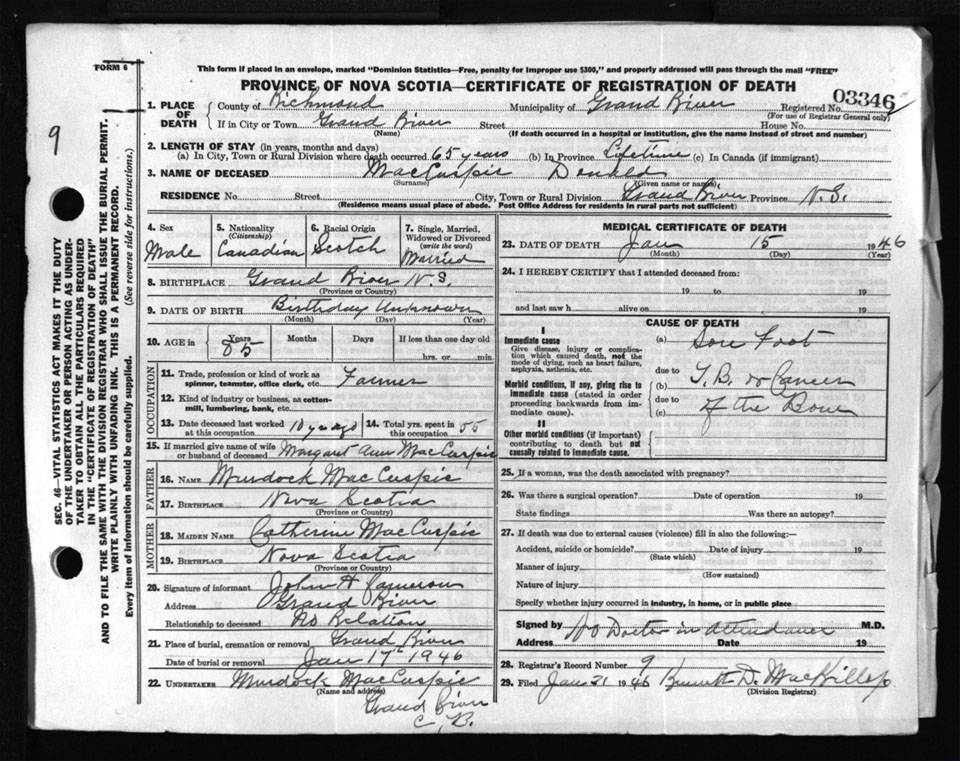 FORM 6
This form if placed in an envelope, marked "Dominion Statistics—Free, penalty for improper use $300," and properly addressed will pass through the mail "FREE"
PROVINCE OF NOVA SCOTIA—CERTIFICATE OF REGISTRATION OF DEATH
1. PLACE OF DEATH County of Richmond Municipality of Grand River Registered No. 03346
(For use of Registrar General only)
If in City or Town Grand River Street House No.
(Name) (If death occurred in a hospital or institution, give the name instead of street and number)
2. LENGTH OF STAY (in years, months and days)
(a) In City, Town or Rural Division where death occurred 65 years (b) In Province Lifetime (c) In Canada (if immigrant)
3. NAME OF DECEASED MacCuspic Donald
(Surname) (Given name or names)
RESIDENCE No. Street City, Town or Rural Division Grand River Province N.S.
(Residence means usual place of abode. Post Office Address for residents in rural parts not sufficient)
4. Sex Male
5. Nationality (Citizenship) Canadian
6. Racial Origin Scotch
7. Single, Married, Widowed or Divorced (write the word) Married
8. BIRTHPLACE Grand River N.S.
(Province or Country)
9. DATE OF BIRTH Birthday Unknown
(Month) (Day) (Year)
10. AGE in Years 85 Months Days If less than one day old
hrs. or min.
OCCUPATION
11. Trade, profession or kind of work as spinner, teamster, office clerk, etc. Farmer
12. Kind of industry or business, as cotton-mill, lumbering, bank, etc.
13. Date deceased last worked at this occupation 10 years ago 14. Total yrs. spent in this occupation 55
15. If married give name of wife or husband of deceased Margaret Ann MacCuspic
FATHER
16. NAME Murdock MacCuspic
17. BIRTHPLACE Nova Scotia
(Province or Country)
MOTHER
18. MAIDEN NAME Catherine MacCuspic
19. BIRTHPLACE Nova Scotia
(Province or Country)
20. Signature of informant John A Cameron
Address Grand River
Relationship to deceased No Relation
21. Place of burial, cremation or removal Grand River
Date of burial or removal Jan 17th 1946
22. UNDERTAKER Murdock MacCuspic
(Name and address)
Grand River
C. B.
MEDICAL CERTIFICATE OF DEATH
23. DATE OF DEATH Jan 15 1946
(Month) (Day) (Year)
24. I HEREBY CERTIFY that I attended deceased from:
19 to 19
and last saw h alive on 19
CAUSE OF DEATH
I
Immediate cause
Give disease, injury or complication which caused death, not the mode of dying, such as heart failure, asphyxia, asthenia, etc.
(a) Sore Foot
due to
Morbid conditions, if any, giving rise to immediate cause (stated in order proceeding backwards from immediate cause).
(b) T.B. or Cancer
due to
(c) of the Bone
II
Other morbid conditions (if important) contributing to death but not causally related to immediate cause.
25. If a woman, was the death associated with pregnancy?
26. Was there a surgical operation? Date of operation 19
State findings Was there an autopsy?
27. If death was due to external causes (violence) fill in also the following:—
Accident, suicide or homicide? Date of injury 19
(State which)
Manner of injury
(How sustained)
Nature of injury
Specify whether injury occurred in industry, in home, or in public place
Signed by No Doctor in attendance M.D.
Address Date 19
28. Registrar's Record Number 9
29. Filed Jan 21 1946 Bennett D. MacKillop
(Division Registrar)
9
SEC. 46—VITAL STATISTICS ACT MAKES IT THE DUTY
OF THE UNDERTAKER OR PERSON ACTING AS UNDER-
TAKER TO OBTAIN ALL THE PARTICULARS REQUIRED
IN THE "CERTIFICATE OF REGISTRATION OF DEATH"
AND TO FILE THE SAME WITH THE DIVISION REGISTRAR WHO SHALL ISSUE THE BURIAL PERMIT.
WRITE PLAINLY WITH UNFADING INK. THIS IS A PERMANENT RECORD.
Every item of information should be carefully supplied. (See reverse side for instructions.)